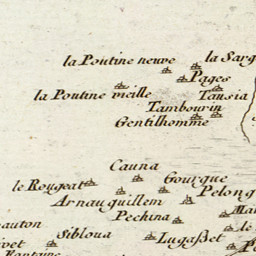 la Poutine neuve
la Sarg
Pages
la Poutine vieille
Tausia
Tambourin
Gentilhomme
Cauna
le Rougeat
Gourgue
Pelong
Arnauguillem
Pechina
Mar
auton
Sibloua
le
Lugasset
ivet
Fontaine